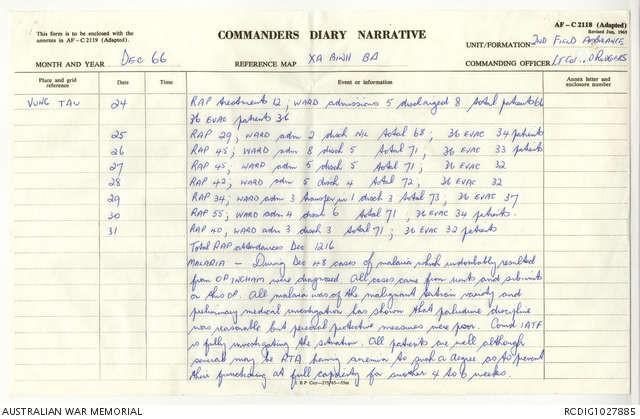 This form is to be enclosed with the
annexes in AF – C 2119 (Adapted)
COMMANDERS DIARY NARRATIVE
AF – C 2118 (Adapted)
Revised Jun, 1965
UNIT/FORMATION 2ND FIELD AMBULANCE
MONTH AND YEAR DEC 66
REFERENCE MAP XA BINH BA
COMMANDING OFFICER Lt Col.
Place and grid reference
Date
Time
Event or information
Annex letter and enclosure number
VUNG TAU 24 RAP treatments 12; WARD admissions 5 discharged 8 total patients 66
36 EVAC patients 36
25 RAP 29; WARD adm 2 disch NIL total 68; 36 EVAC 34 patients
26 RAP 45; WARD adm 8 disch 5 total 71; 36 EVAC 33 patients
27 RAP 45, WARD adm 5 disch 5 total 71; 36 EVAC 32
28 RAP 42; WARD adm 5 disch 4 total 72, 36 EVAC 32
29 RAP 34; WARD adm 3 transfer in 1 disch 3 total 73, 36 EVAC 37
30 RAP 55; WARD adm 4 disch 6 total 71, 36 EVAC 34 patients.
31 RAP 40, WARD adm 3 disch 3 total 71; 36 EVAC 32 patients
Total RAP attendances Dec 1216
MALARIA – During Dec 48 cases of malaria which undoubtably resulted
from OP INGHAM were diagnosed. All cases came from units and subunits
on this OP. All malaria was of the malignant tertian variety and
preliminary medical investigation has shown that paludrine discipline
was reasonable but personal protective measures were poor. Comd 1ATF
is fully investigating the situation. All patients are well although
several may be RTA having anemia to such a degree as to prevent
their functioning at full capacity for another 4 to 6 weeks.
AUSTRALIAN WAR MEMORIAL
RCDIG1027885